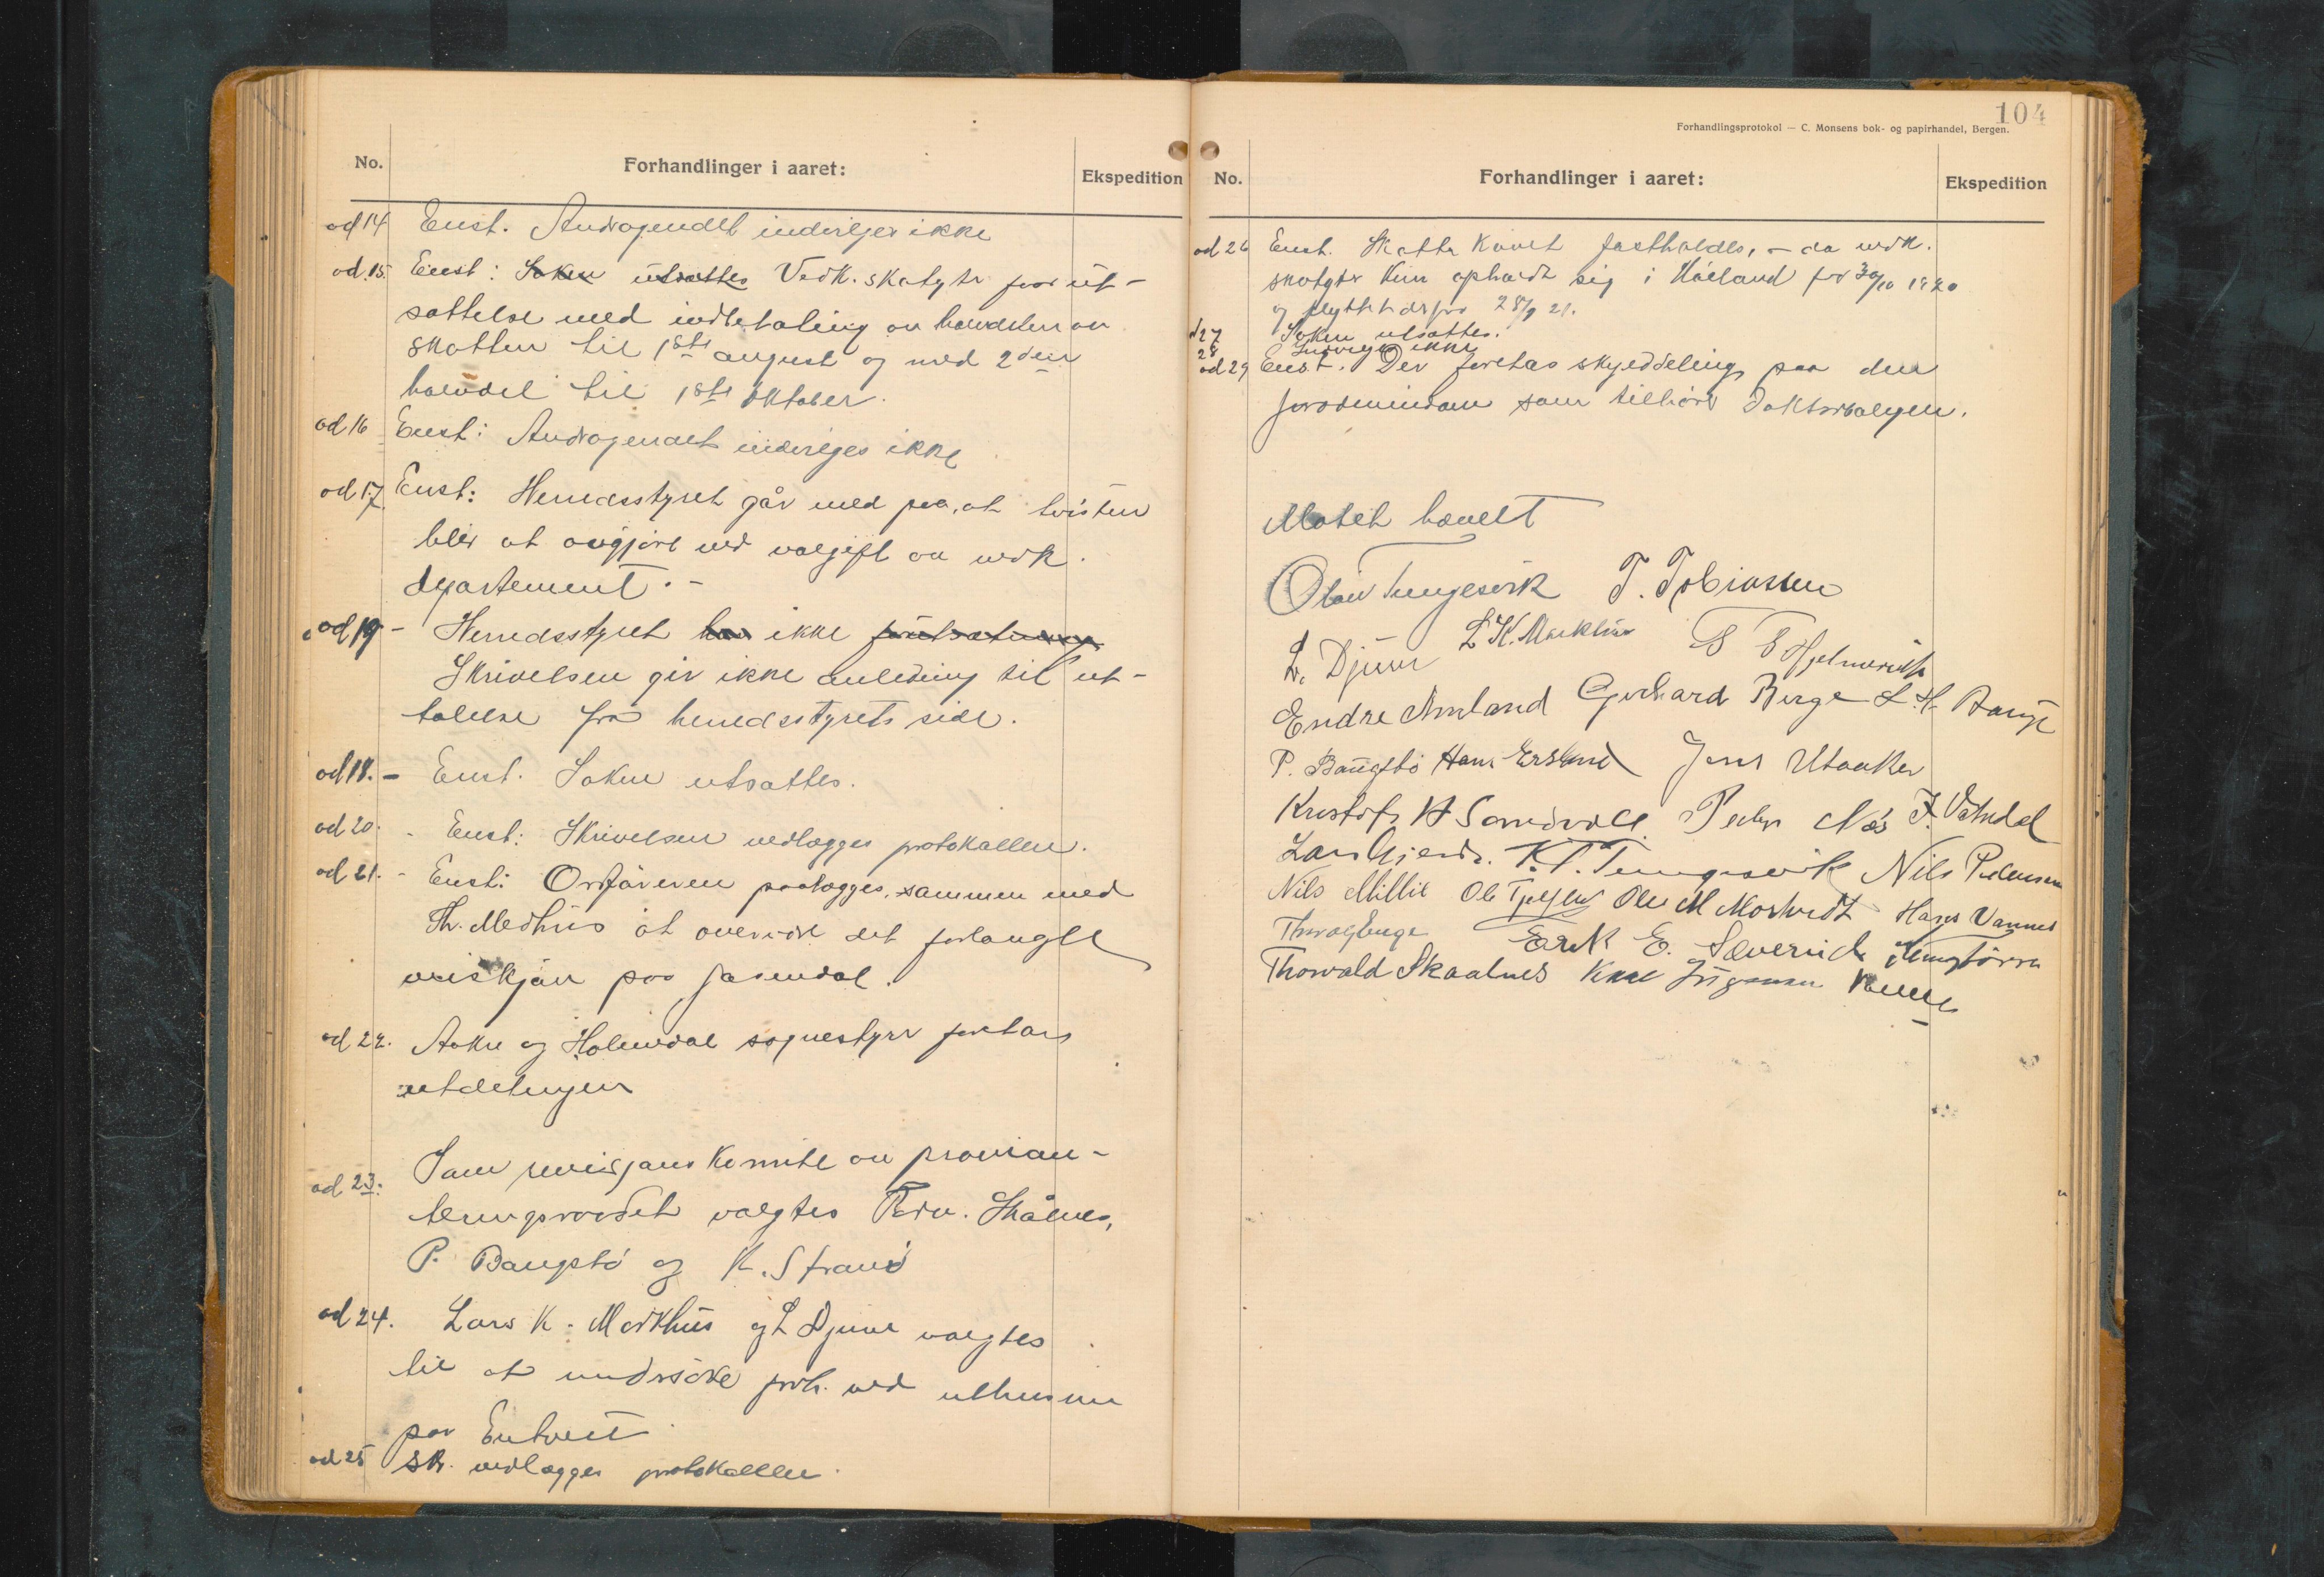 No.
Forhandlinger i aaret:
Ekspedition
od 14 Enst. Andragendet indvilges ikke
od 15. Enst: Saken utsættes Vedk. skatyter faar ut-
sættelse med indbetaling av halvdelen av
skatten til 1ste august og med 2den
halvdel til 1ste oktober.
od 16 Enst: Andragendet indvilges ikke
od 17. Enst: Herredsstyret går med paa, at tvisten
blir at avgjøre ved voldgift av vedk.
departement. -
od 19 - Herredsstyret har ikke
Skrivelsen gir ikke anledning til ut-
talelse fra herredsstyrets side.
od 18. - Enst. Saken utsættes.
od 20. - Enst: Skrivelsen vedlægges protokollen.
od 21. - Enst: Ordføreren paalægges, sammen med
Th. Medhus at overvære det forlangte
paa
od 22. Aakre og Holmedal sognestyre foretar
utdelingen
od 23. Som revisjons komite av provian-
teringsraadet valgtes Torv. Skålnes,
P. Baugstø og K. Strand
od 24. Lars K. Markhus og L Djuve valgtes
til at undersøke forh. ved uthusene
paa
od 25 Sk. vedlægges protokollen.
104
Forhandlingsprotokol — C. Monsens bok- og papirhandel, Bergen.
No.
Forhandlinger i aaret:
Ekspedition
od 26 Enst. Skattekravet fastholdes, - da vedk.
skatyter kun opholdt sig i før 30/10 1920
og flyttet derfra 28/9 21.
d 27 Saken utsættes.
28 Indvilges ikke
od 29 Enst. Der foretas skylddeling paa den
som tilhører Doktorboligen.
Møtet hævet
Olav Tungesvik T. Tobiassen
L. Djuve L. K. Markhus
Endre Amland Gerhard Berge L. H. Bauge
P. Baugstø Hans Erstand Jens Utaaker
Kristofr. H Sandvoll. Peder Næs J. Vatndal
Lars Gjerde. K. T. Tungesvik Nils Pedersen
Nils Millie Ole M Mostvedt Hans Vannes
Erik E. Sæverud
Thorvald Skaalnes